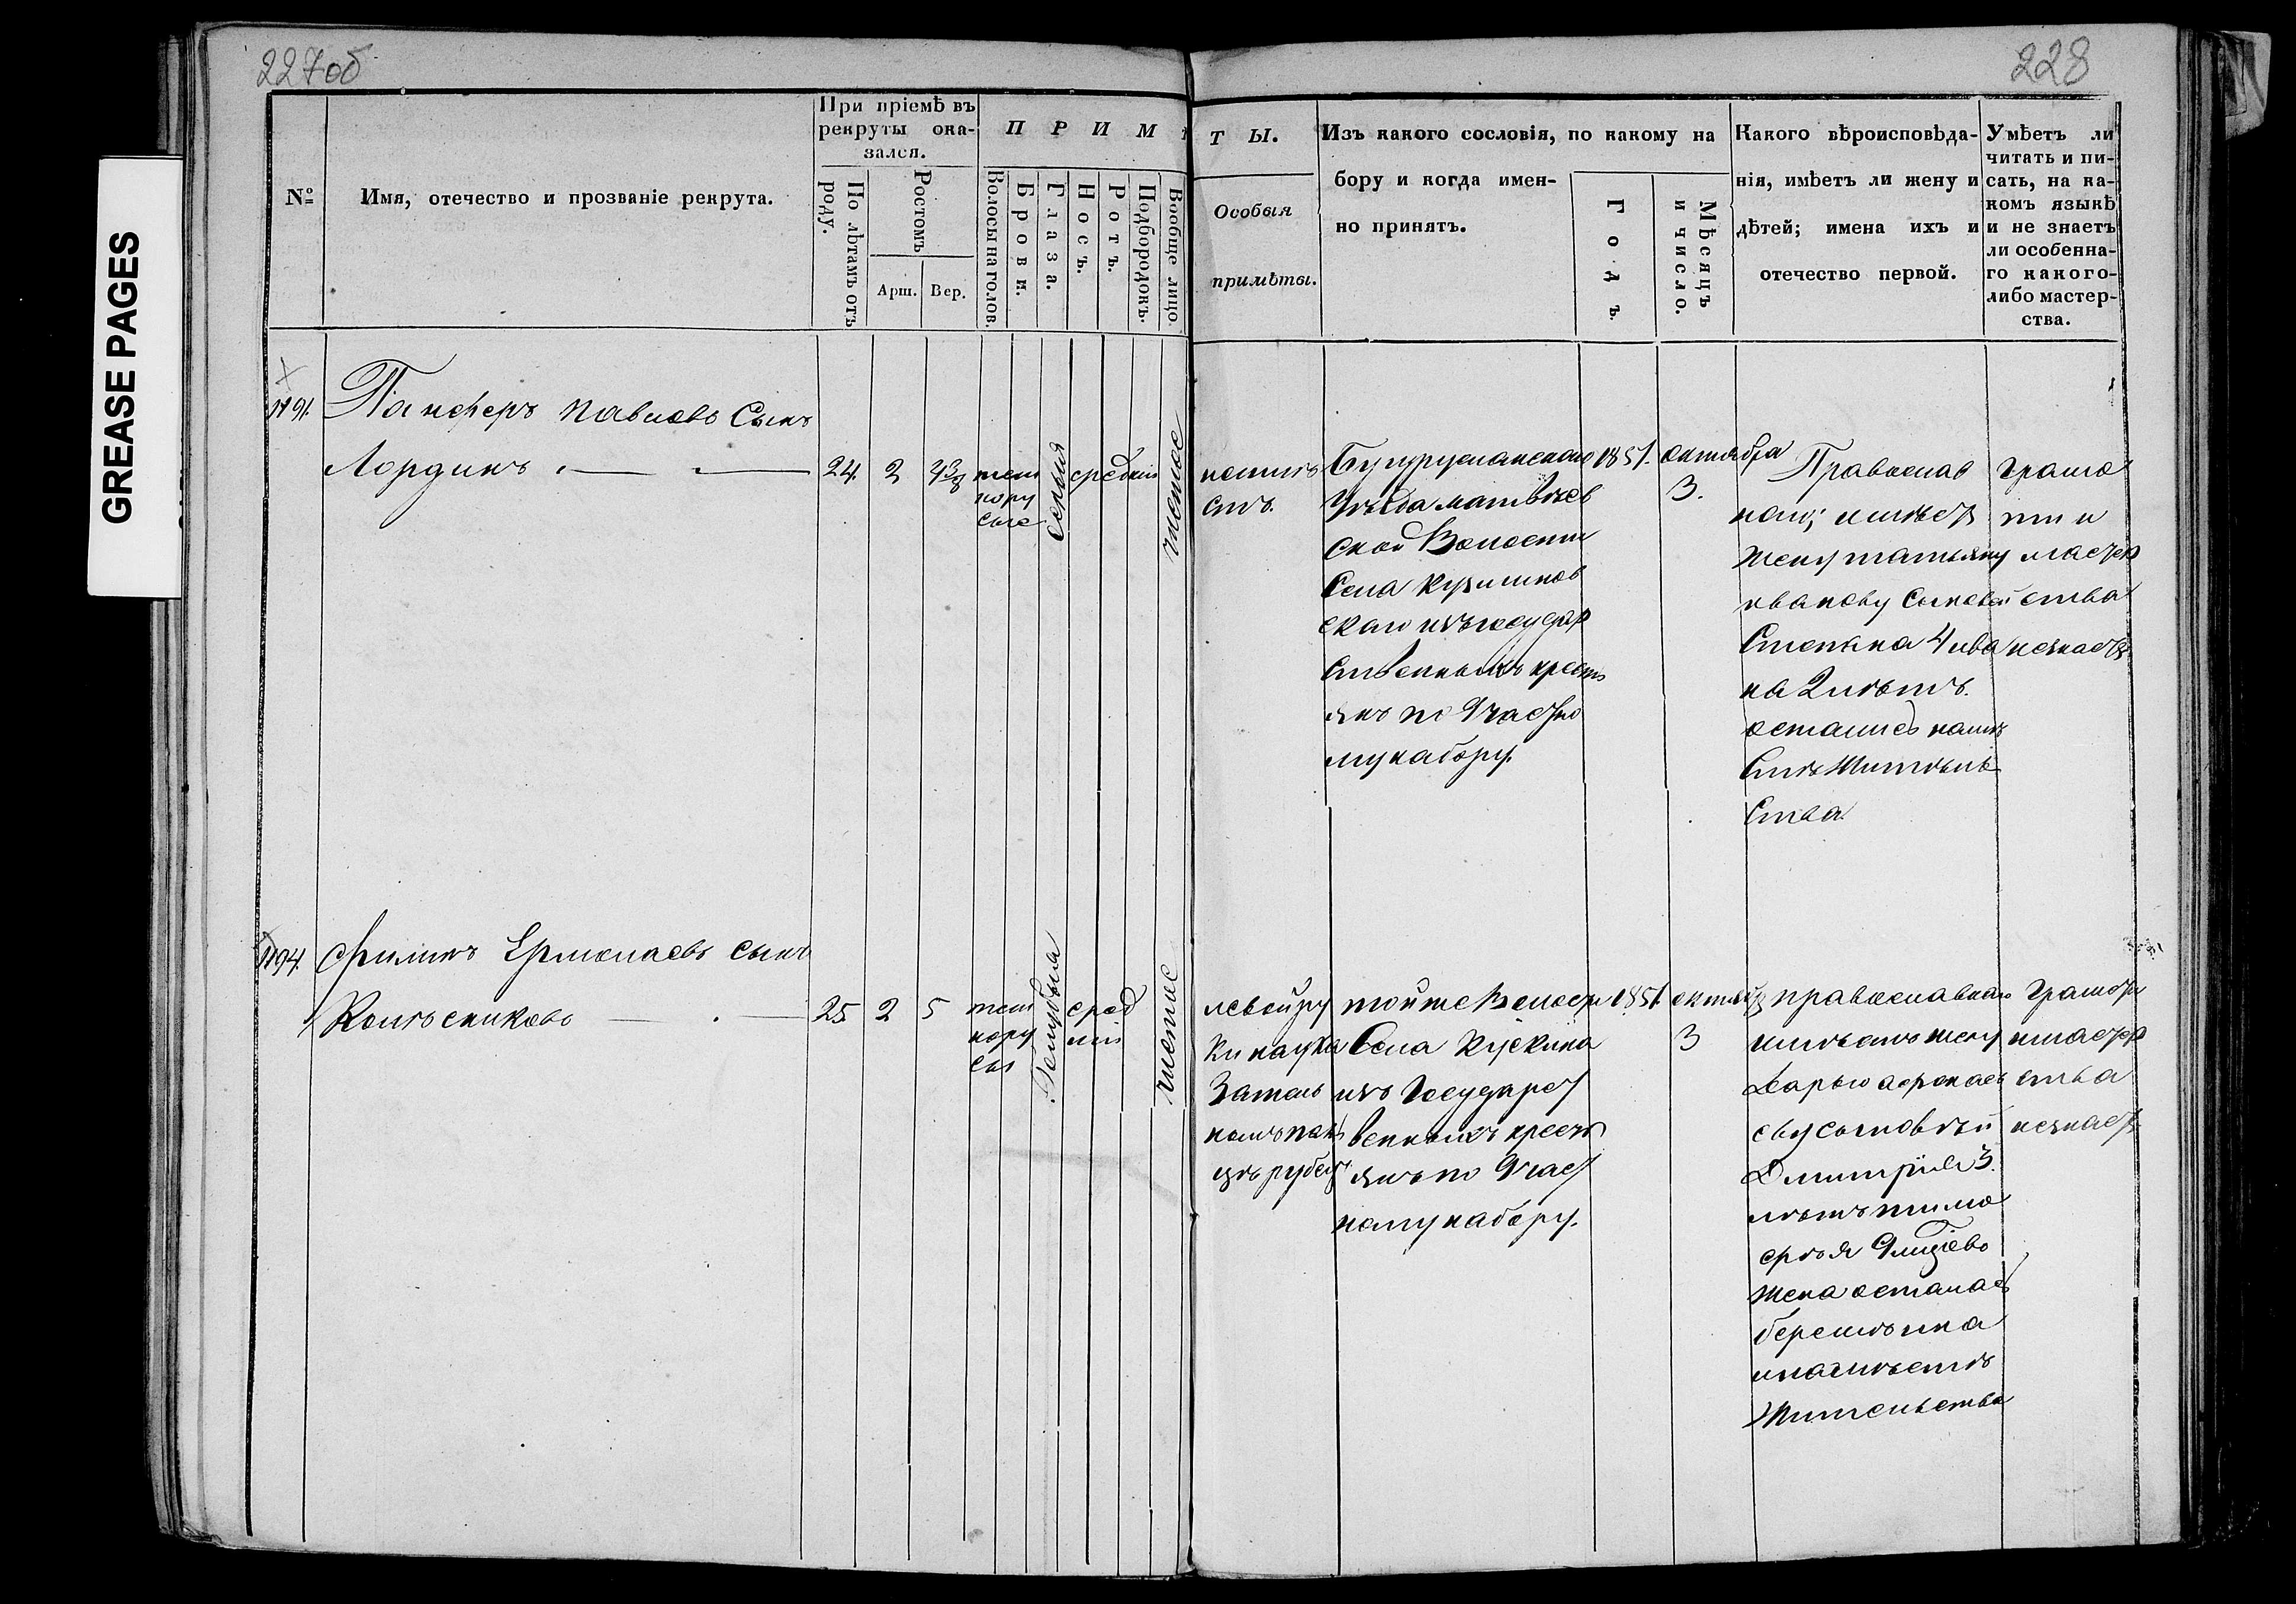 GREASE PAGES
227об
228
№
Имя, отечество и прозваніе рекрута.
При пріемѣ въ
рекруты ока-
зался.
По лѣтамъ отъ
роду.
Ростомъ
Арш.
Вер.
П Р И М Ѣ
Волосы на голов.
Брови.
Глаза.
Носъ.
Ротъ.
Подбородокъ.
Вообще лицо.
Т Ы.
Особыя
примѣты.
Изъ какого сословія, по какому на
бору и когда имен-
но принятъ.
Годъ.
Мѣсяцъ
и число.
Какого вѣроисповѣда-
нія, имѣетъ ли жену и
дѣтей; имена ихъ и
отечество первой.
Умѣетъ ли
читать и пи-
сать, на ка-
комъ языкѣ
и не знаетъ
ли особенна-
го какого-
либо мастер-
ства.
Панферъ павловъ Сынъ
Лординъ
24. 2
тем
нору
сые
серыя
средніи
чистое
Бугурусланскаго
Уѣзда матвѣев
ской Волости
Села
скаго изъ государ
ственныхъ кресть
янъ по 9 частно
му набору.
1851.
октября
3.
Православ
наго; имѣетъ
жену татьяну
иванову сыновей
Степана 4 ива
на 2 лѣтъ.
остались на мѣ
стѣ жительь
ства
грамо
ти и
мастер
ства
незнаетъ
1194.
Филипъ Ермолаевъ сынъ
Колѣсниковъ
25 2 5
тем
нору
сыя
Голубыя
сред
ніи
чистое
левой ру
ки на ука
зательь
номъ паль
цѣ рубецъ
той же Волости
Села Кускина
изъ Государст
венныхъ кресть
янъ по 9 част
ному набору.
1851.
октября
3
православнаго
имѣетъ жену
Дарью афонась
еву сыновѣй
Дмитрія 3.
лѣтъ тимо
фѣя
жена осталась
беремѣнна
на мѣстѣ
жительства
грамоти
и мастер
ства
незнаетъ